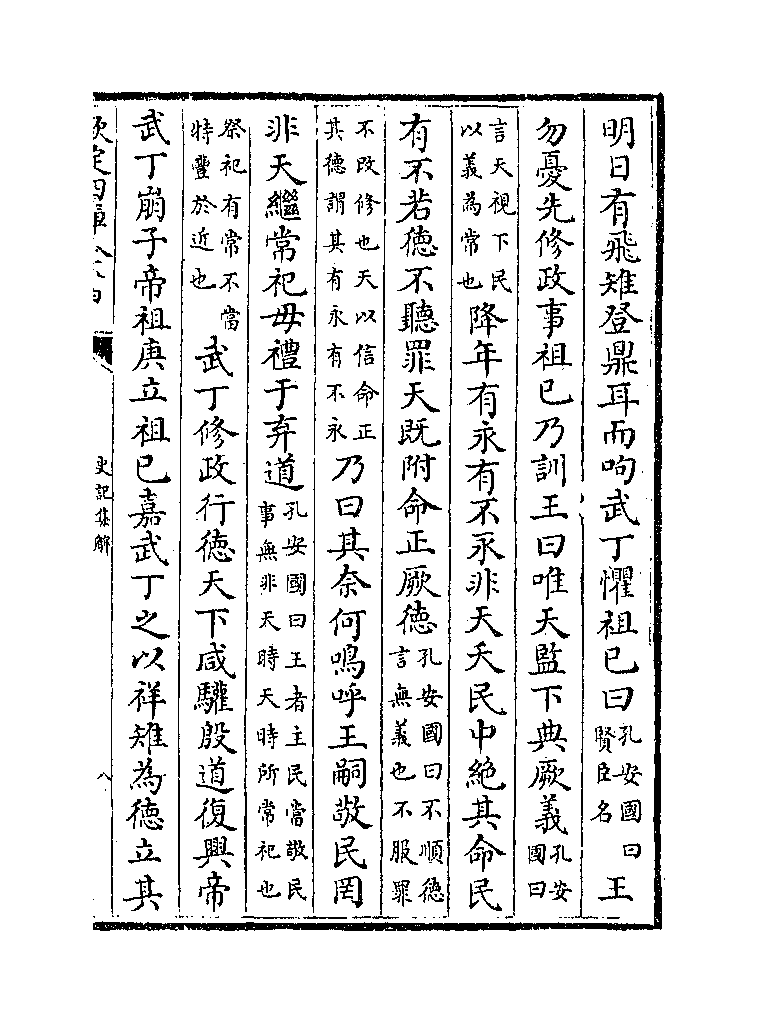 明日有飛雉登鼎耳而呴武丁懼祖已曰孔安國曰賢臣名王
勿憂先修政事祖已乃訓王曰唯天監下典厥義孔安國曰
言天視下民以義為常也降年有永有不永非天夭民中絶其命民
有不若徳不聽罪天既附命正厥徳孔安國曰不順徳言無義也不服罪
不改修也天以信命正其徳謂其有永有不永乃曰其奈何嗚呼王嗣敬民罔
非天繼常祀毋禮于弃道孔安國曰王者主民當敬民事無非天時天時所常祀也
祭祀有常不當特豐於近也武丁修政行徳天下咸驩殷道復興帝
武丁崩子帝祖庚立祖已嘉武丁之以祥雉為徳立其
欽定四庫全書
史記集解
八